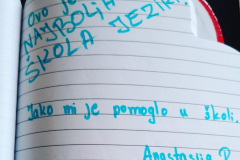 Ovo je
NAJBOLJA
ŠKOLA JEZIKA
Jako mi je pomoglo u školi.
Anastasija P.